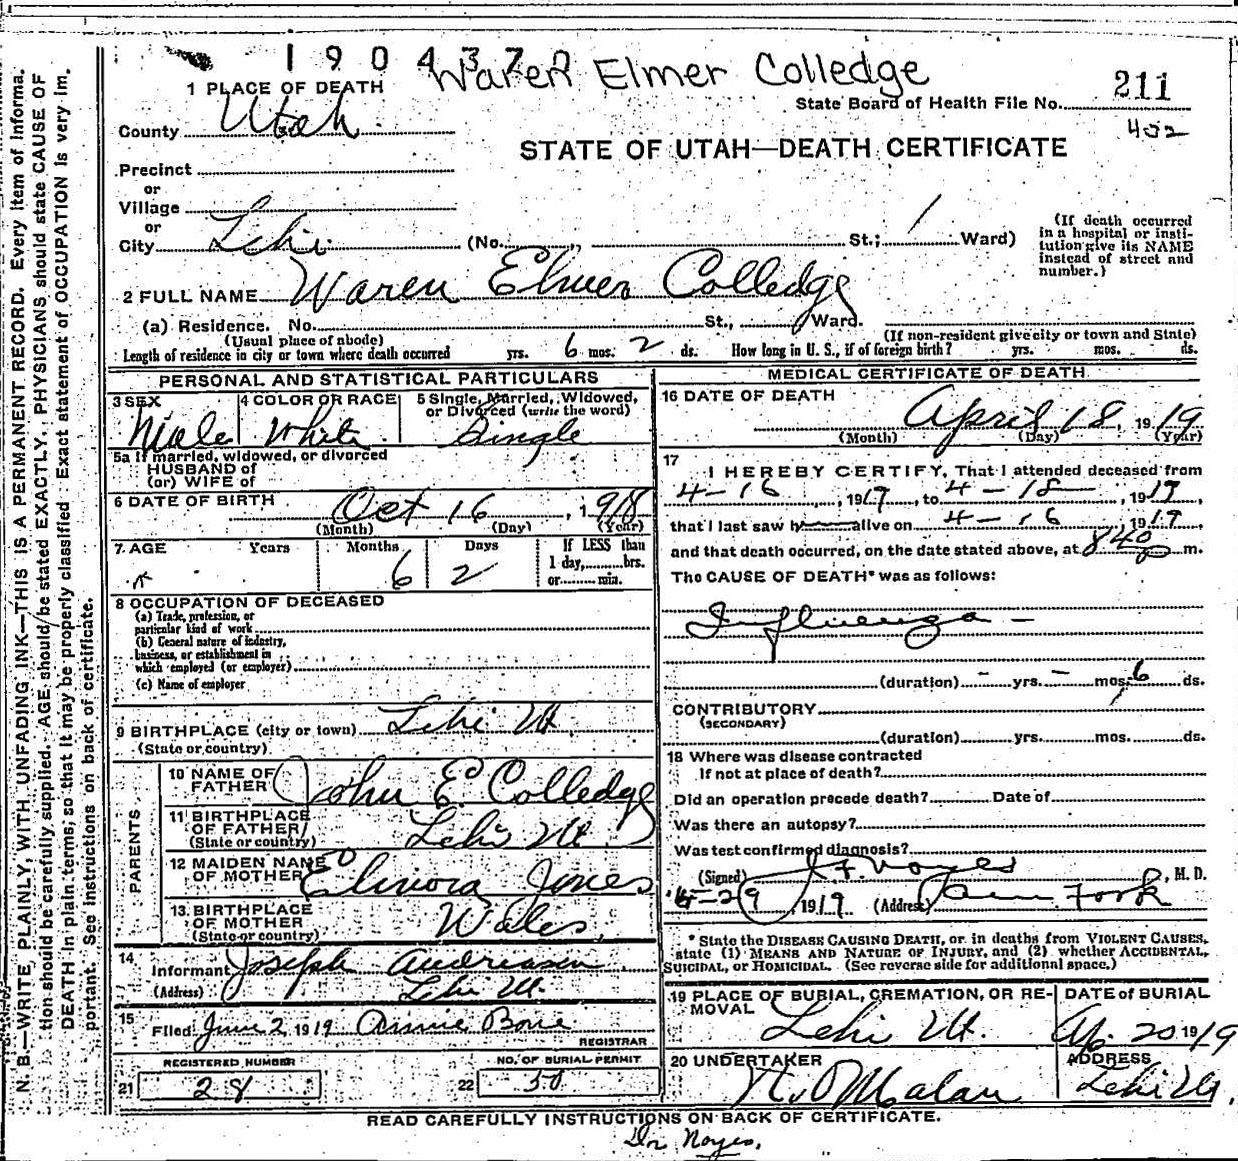 190437
Waren Elmer Colledge
1 PLACE OF DEATH
State Board of Health File No. 211
County Utah
402
STATE OF UTAH—DEATH CERTIFICATE
Precinct
or
Village
or
City Lehi (No. , St.; 1 Ward)
(If death occurred in a hospital or insti-
tution give its NAME
instead of street and
number.)
2 FULL NAME Waren Elmer Colledge
(a) Residence. No. St., Ward.
(Usual place of abode)
(If non-resident give city or town and State)
Length of residence in city or town where death occurred yrs. 6 mos. 2 ds. How long in U. S., if of foreign birth? yrs. mos. ds.
PERSONAL AND STATISTICAL PARTICULARS
3 SEX Male
4 COLOR OR RACE White
5 Single, Married, Widowed,
or Divorced (write the word)
Single
5a If married, widowed, or divorced
HUSBAND of
(or) WIFE of
6 DATE OF BIRTH Oct 16, 1918
(Month) (Day) (Year)
7 AGE Years Months Days If LESS than
1 day, hrs.
or min.
6 2
8 OCCUPATION OF DECEASED
(a) Trade, profession, or
particular kind of work
(b) General nature of industry,
business, or establishment in
which employed (or employer)
(c) Name of employer
9 BIRTHPLACE (city or town) Lehi Ut.
(State or country)
PARENTS
10 NAME OF
FATHER John E. Colledge
11 BIRTHPLACE
OF FATHER Lehi Ut.
(State or country)
12 MAIDEN NAME
OF MOTHER Elinora Jones
13 BIRTHPLACE
OF MOTHER Wales
(State or country)
14 Informant Joseph Andreasen
(Address) Lehi Ut.
15 Filed June 2 1919 Annie Bone
REGISTRAR
REGISTERED NUMBER
21 28
NO. OF BURIAL PERMIT
22 50
MEDICAL CERTIFICATE OF DEATH
16 DATE OF DEATH
April 18, 1919
(Month) (Day) (Year)
17
I HEREBY CERTIFY, That I attended deceased from
4-16, 1919, to 4-18, 1919,
that I last saw h alive on 4-16 1919,
and that death occurred, on the date stated above, at 840 p m.
The CAUSE OF DEATH* was as follows:
Influenza -
(duration) - yrs. - mos. 6 ds.
CONTRIBUTORY
(SECONDARY)
(duration) yrs. mos. ds.
18 Where was disease contracted
If not at place of death?
Did an operation precede death? Date of
Was there an autopsy?
Was test confirmed diagnosis?
(Signed) J. F. Noyes, M. D.
1919 (Address) Am Fork
* State the DISEASE CAUSING DEATH, or in deaths from VIOLENT CAUSES,
state (1) MEANS AND NATURE OF INJURY, and (2) whether ACCIDENTAL,
SUICIDAL, or HOMICIDAL. (See reverse side for additional space.)
19 PLACE OF BURIAL, CREMATION, OR RE-
MOVAL
Lehi Ut.
DATE of BURIAL
Ap. 20 1919
20 UNDERTAKER
N. O. Malan
ADDRESS
Lehi Ut.
READ CAREFULLY INSTRUCTIONS ON BACK OF CERTIFICATE.
Dr Noyes.
N. B.—WRITE PLAINLY, WITH UNFADING INK—THIS IS A PERMANENT RECORD. Every item of informa-
tion should be carefully supplied. AGE should be stated EXACTLY. PHYSICIANS should state CAUSE OF
DEATH in plain terms, so that it may be properly classified. Exact statement of OCCUPATION is very im-
portant. See instructions on back of certificate.